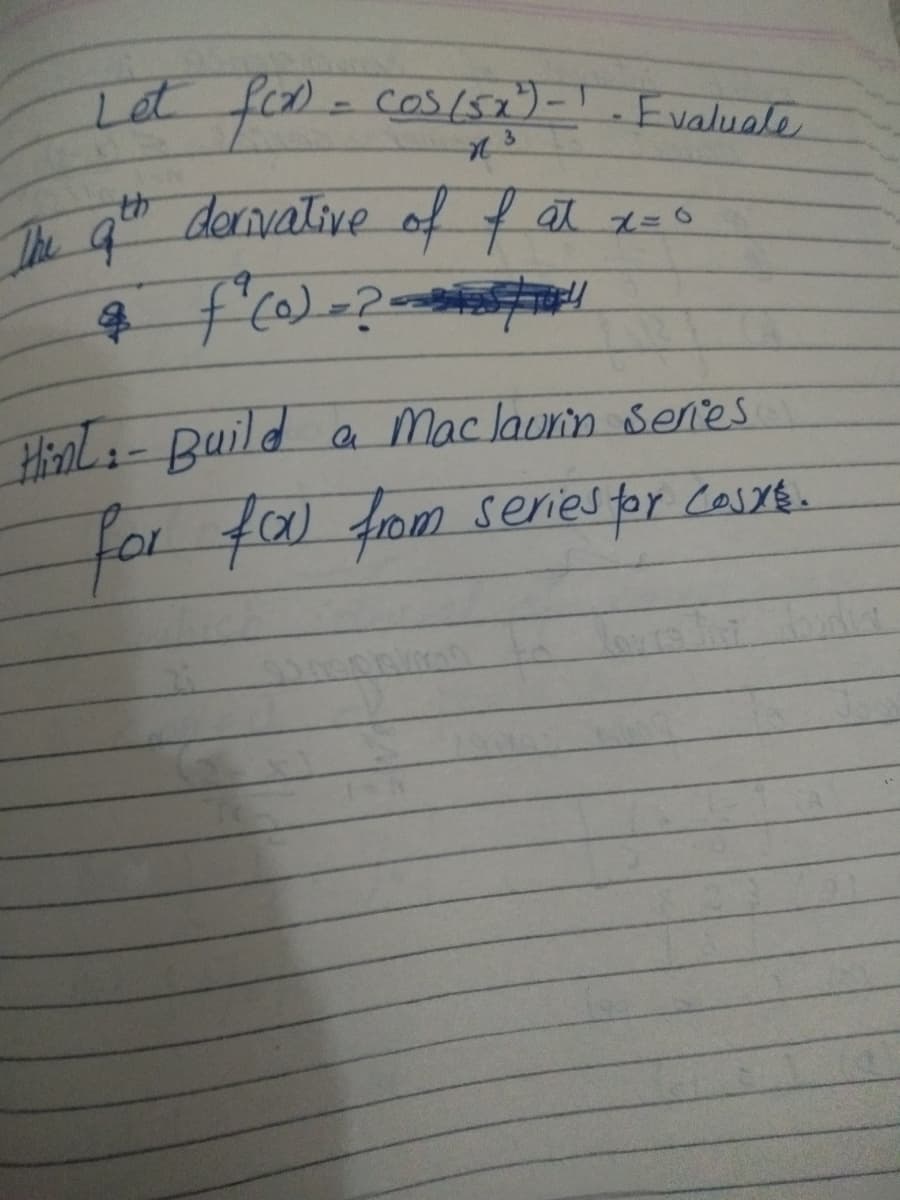 Let f(x) = cos(5x²)-1 / x³ . Evaluate
The 9th derivative of f at x=0
f⁹(0) =?
Hint:- Build a Maclaurin series
for f(x) from series for Cosx.